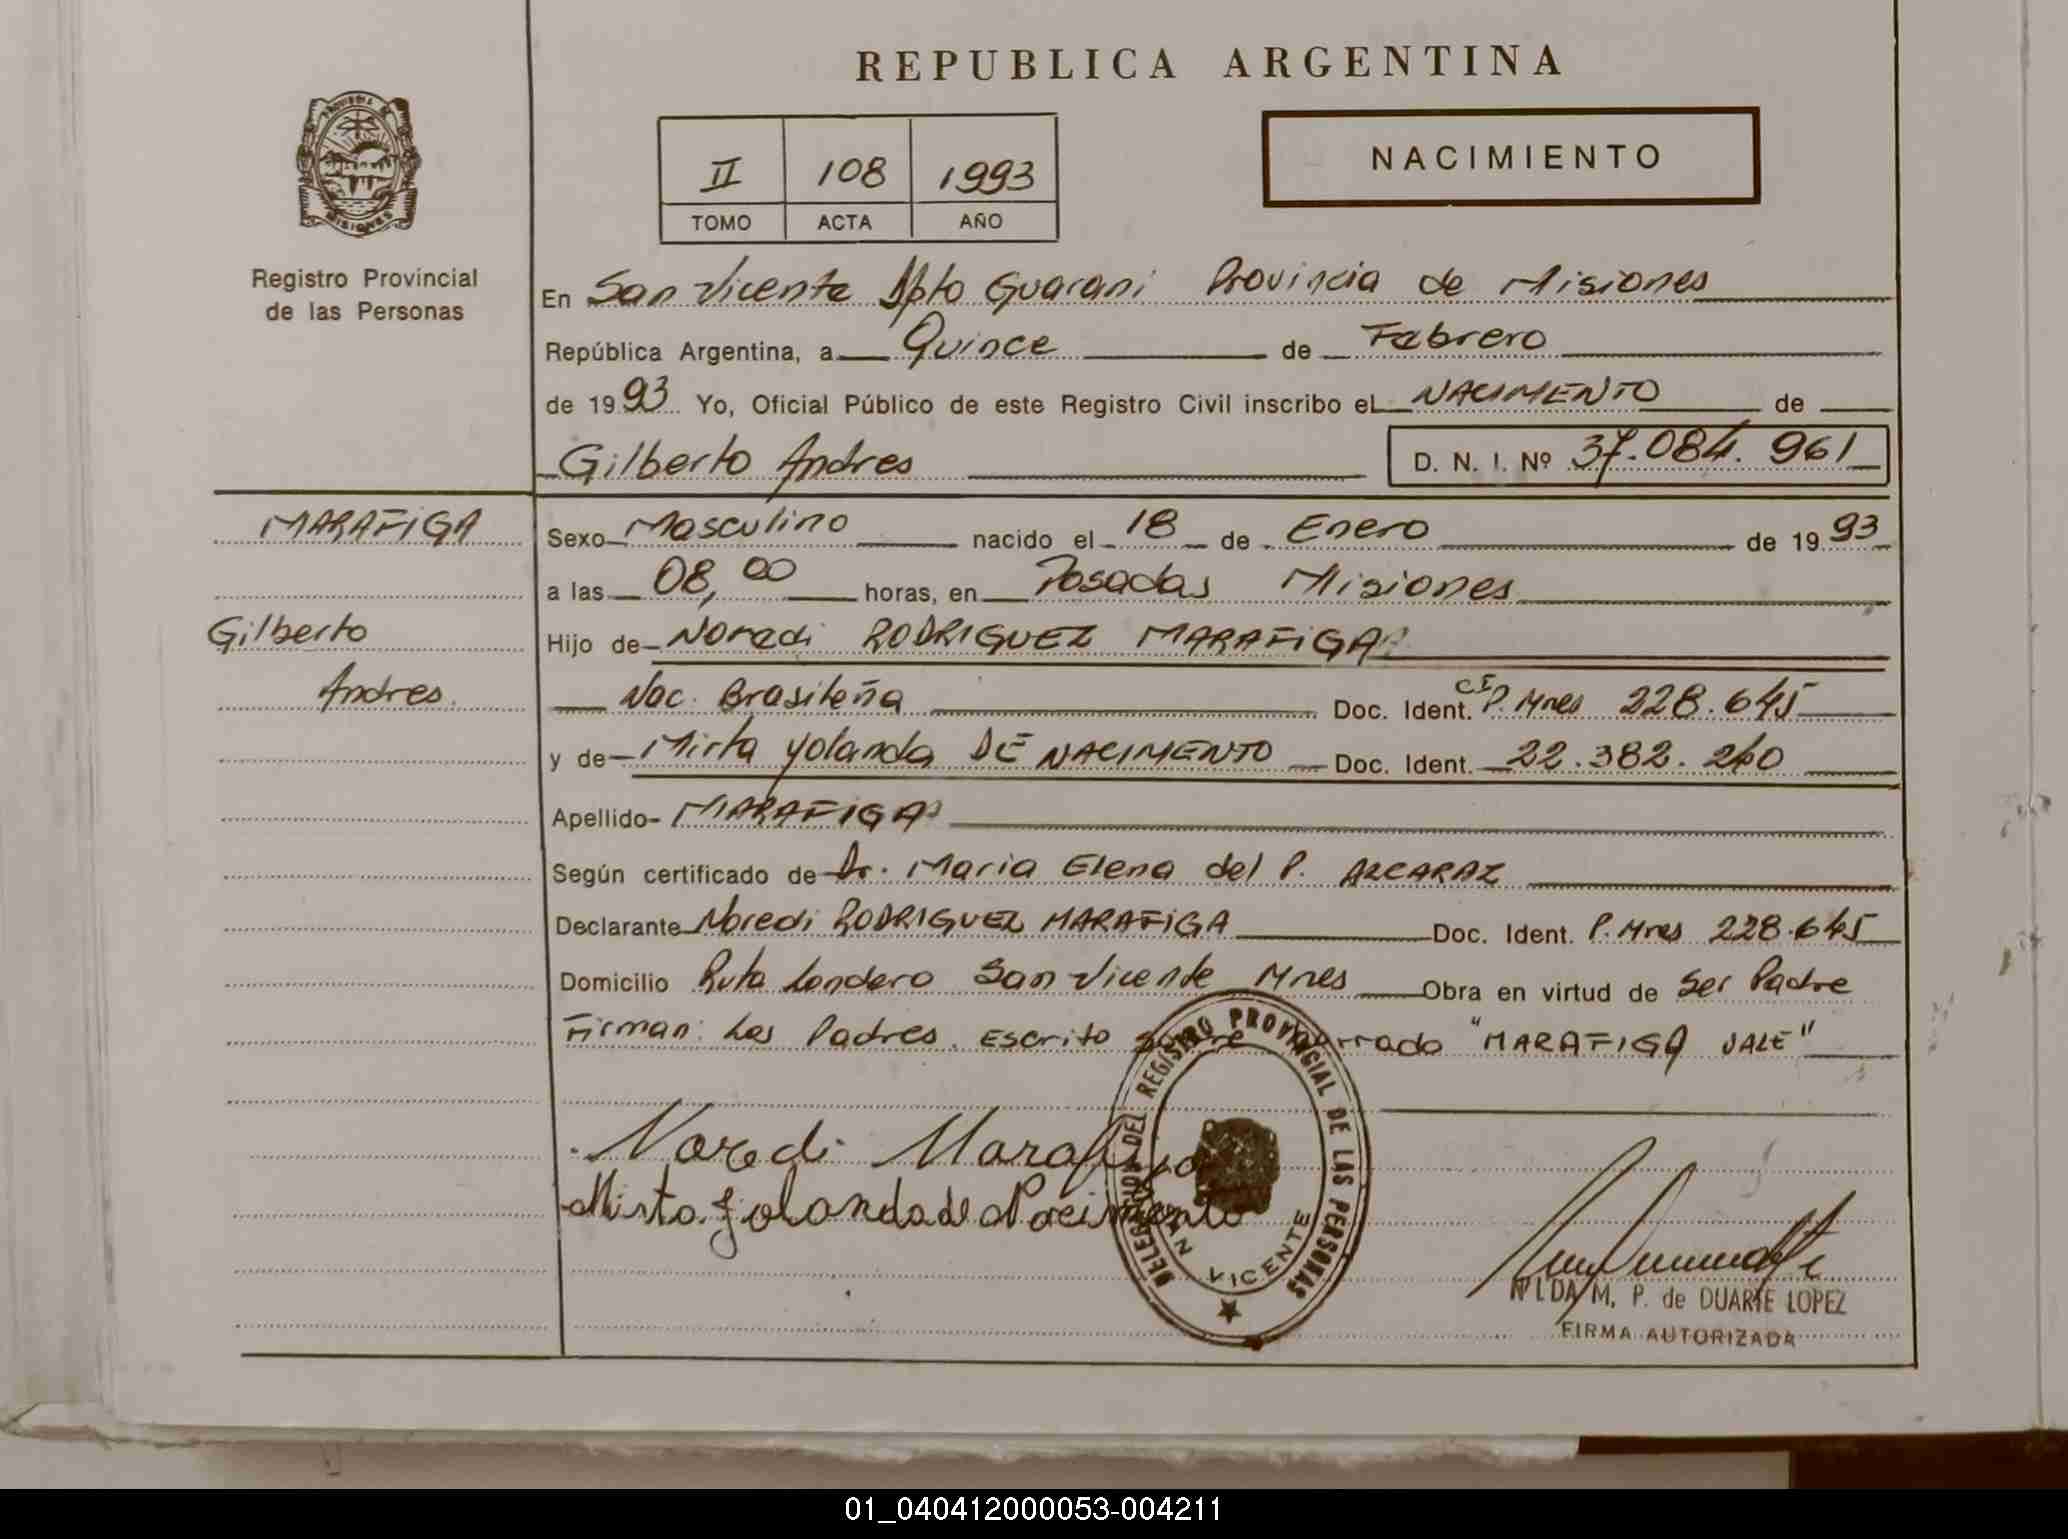 REPUBLICA ARGENTINA
PROVINCIA DE
MISIONES
Registro Provincial
de las Personas
II 108 1993
TOMO ACTA AÑO
NACIMIENTO
En San Vicente Dpto Guarani Provincia de Misiones
República Argentina, a Quince de Febrero
de 1993 Yo, Oficial Público de este Registro Civil inscribo el NACIMIENTO de
Gilberto Andres D. N. I. Nº 37.084.961
MARAFIGA
Gilberto
Andres.
Sexo Masculino nacido el 18 de Enero de 1993
a las 08,00 horas, en Posadas Misiones
Hijo de Noredi RODRIGUEZ MARAFIGA
Nac. Brasileña Doc. Ident. CI P. Mnes 228.645
y de Mirta Yolanda DE NACIMENTO Doc. Ident. 22.382.260
Apellido MARAFIGA
Según certificado de Dr. Maria Elena del P. ALCARAZ
Declarante Noredi RODRIGUEZ MARAFIGA Doc. Ident. P. Mnes 228.645
Domicilio Ruta Londero San Vicente Mnes Obra en virtud de Ser Padre
Firman: Los Padres. Escrito sobre borrado "MARAFIGA VALE"
Noredi Marafiga
Mirta Yolanda de Nacimento
DELEGACION DEL REGISTRO PROVINCIAL DE LAS PERSONAS
SAN VICENTE
NILDA M. P. de DUARTE LOPEZ
FIRMA AUTORIZADA
01_040412000053-004211